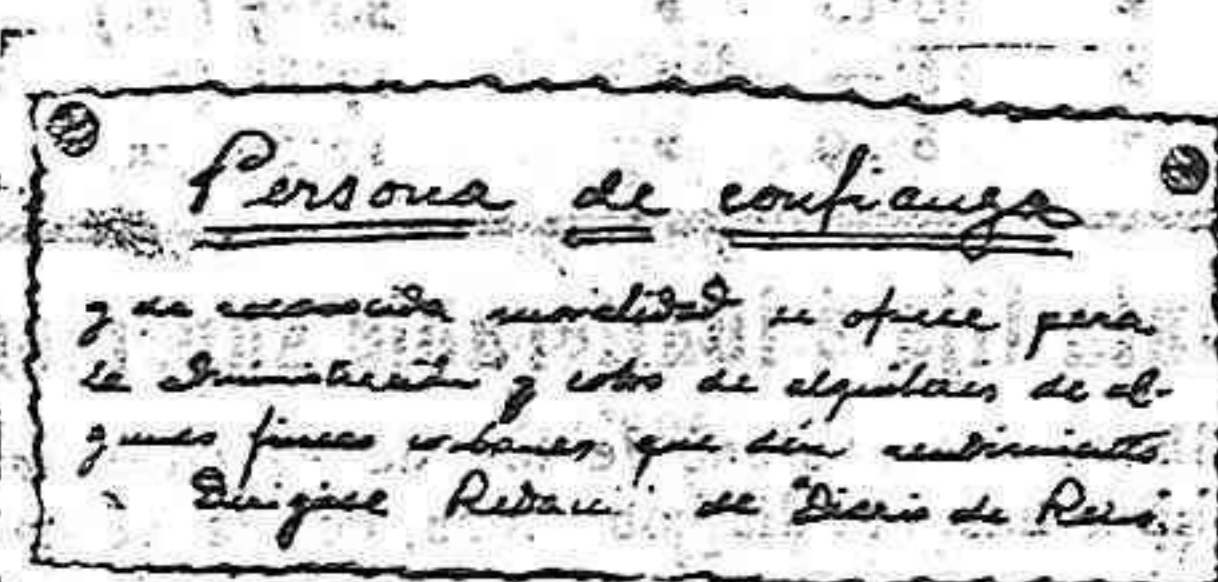 Persona de confianza
y de conocida moralidad se ofrece para
la administración y cobro de alquileres de al-
gunas fincas urbanas que den rendimiento.
Dirigirse Redacci de "Diario de Reus.